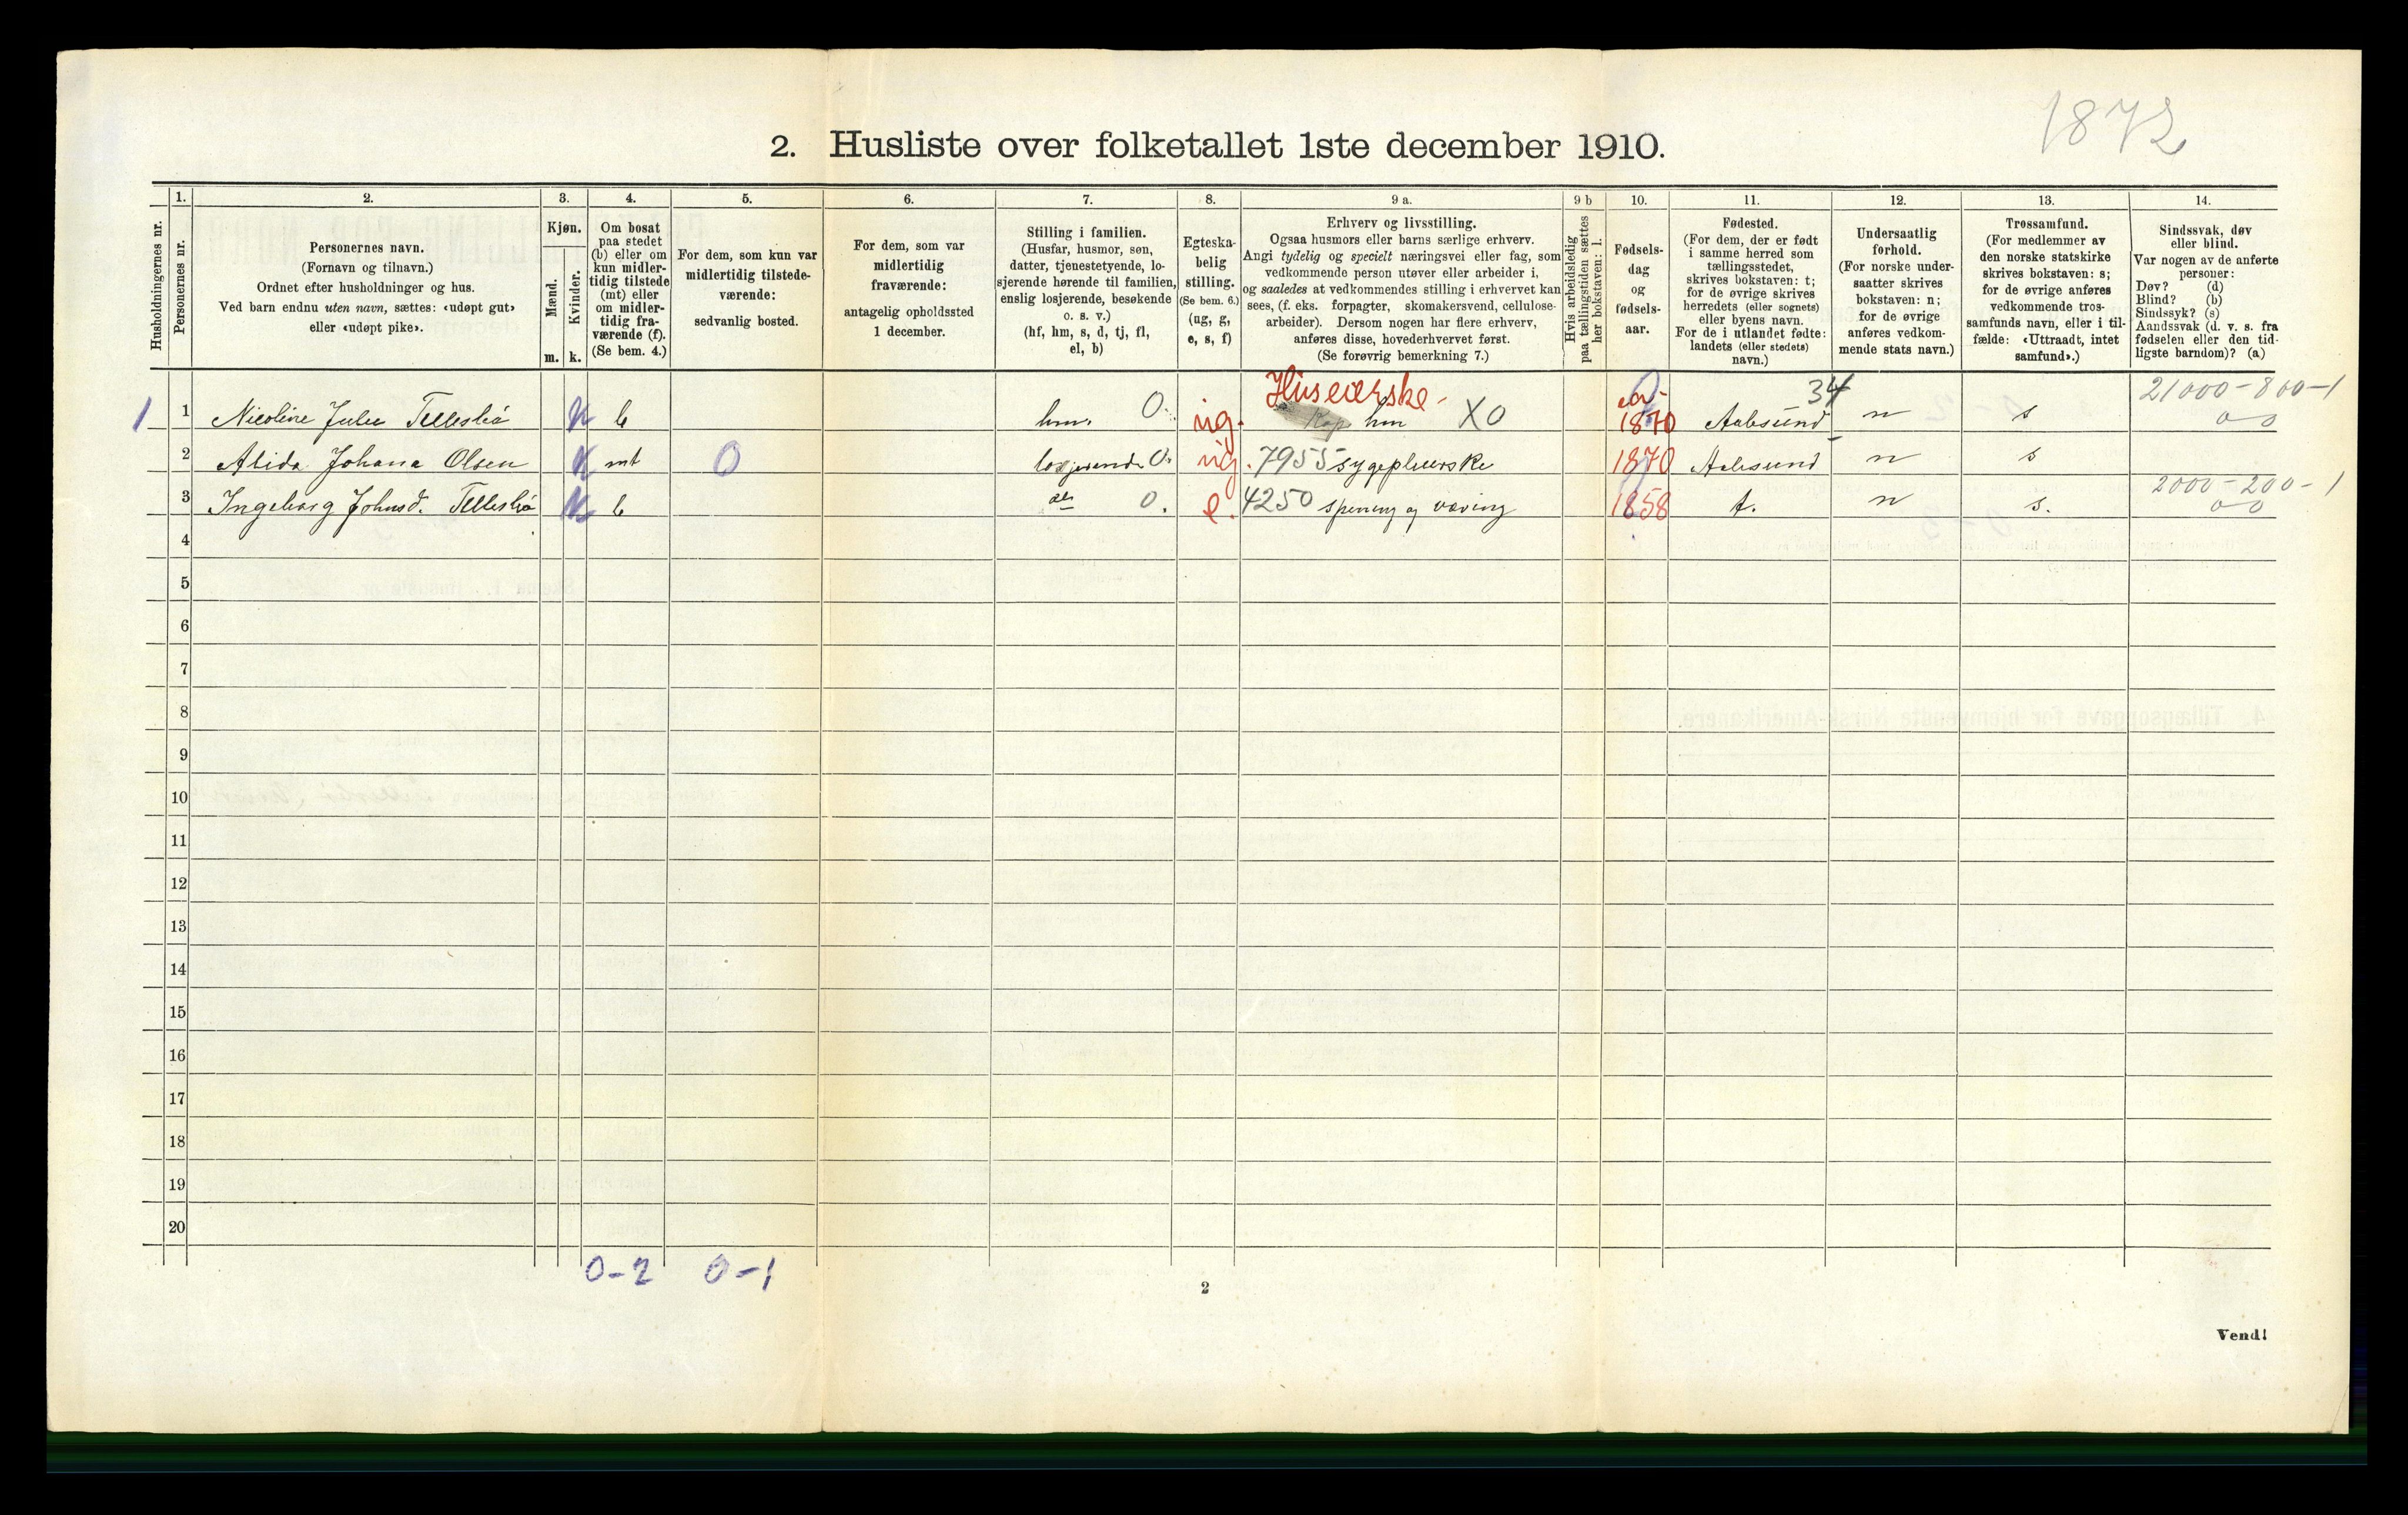 1872
2. Husliste over folketallet 1ste december 1910.
Husholdningernes nr.
1.
Personernes nr.
2.
Personernes navn.
(Fornavn og tilnavn.)
Ordnet efter husholdninger og hus.
Ved barn endnu uten navn, sættes: «udøpt gut»
eller «udøpt pike».
3.
Kjøn.
Mænd.
Kvinder.
m. k.
4.
Om bosat
paa stedet
(b) eller om
kun midler-
tidig tilstede
(mt) eller
om midler-
tidig fra-
værende (f).
(Se bem. 4.)
5.
For dem, som kun var
midlertidig tilstede-
værende:
sedvanlig bosted.
6.
For dem, som var
midlertidig
fraværende:
antagelig opholdssted
1 december.
7.
Stilling i familien.
(Husfar, husmor, søn,
datter, tjenestetyende, lo-
sjerende hørende til familien,
enslig losjerende, besøkende
o. s. v.)
(hf, hm, s, d, tj, fl,
el, b)
8.
Egteska-
belig
stilling.
(Se bem. 6.)
(ug, g,
e, s, f)
9 a.
Erhverv og livsstilling.
Ogsaa husmors eller barns særlige erhverv.
Angi tydelig og specielt næringsvei eller fag, som
vedkommende person utøver eller arbeider i,
og saaledes at vedkommendes stilling i erhvervet kan
sees, (f. eks. forpagter, skomakersvend, cellulose-
arbeider). Dersom nogen har flere erhverv,
anføres disse, hovederhvervet først.
(Se forøvrig bemerkning 7.)
9 b
Hvis arbeidsledig
paa tællingstiden sættes
her bokstaven: l.
10.
Fødsels-
dag
og
fødsels-
aar.
11.
Fødested.
(For dem, der er født
i samme herred som
tællingsstedet,
skrives bokstaven: t;
for de øvrige skrives
herredets (eller sognets)
eller byens navn.
For de i utlandet fødte:
landets (eller stedets)
navn.)
12.
Undersaatlig
forhold.
(For norske under-
saatter skrives
bokstaven: n;
for de øvrige
anføres vedkom-
mende stats navn.)
13.
Trossamfund.
(For medlemmer av
den norske statskirke
skrives bokstaven: s;
for de øvrige anføres
vedkommende tros-
samfunds navn, eller i til-
fælde: «Uttraadt, intet
samfund».)
14.
Sindssvak, døv
eller blind.
Var nogen av de anførte
personer:
Døv? (d)
Blind? (b)
Sindssyk? (s)
Aandssvak (d. v. s. fra
fødselen eller den tid-
ligste barndom)? (a)
Huseierske 34 21000-800-1
1 1 Nicoline Julie K b hm. O. ug. hm XO 1870 Aalesund n s o o
2 Alida Johana Olsen K mt O losjerende O. ug. 7955 sygepleierske 1870 Aalesund n s
2000-200-1
3 Ingeborg Johnsd. K b O. e. 4250 spening og væving 1858 t. n s. o o
4
5
6
7
8
9
10
11
12
13
14
15
16
17
18
19
20
0-2 0-1
2
Vend!